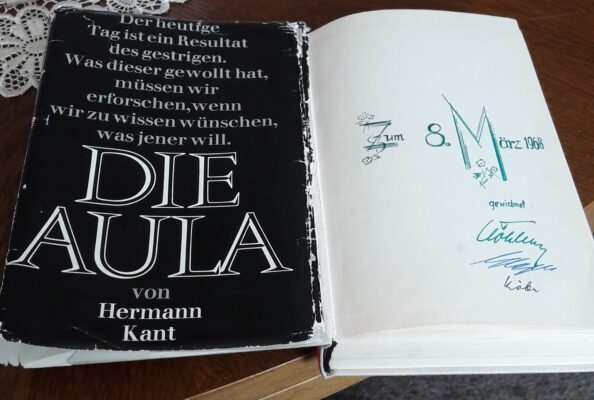 Der heutige
Tag ist ein Resultat
des gestrigen.
Was dieser gewollt hat,
müssen wir
erforschen, wenn
wir zu wissen wünschen,
was jener will.
DIE
AULA
von
Hermann
Kant
Zum 8. März 1968
gewidmet: